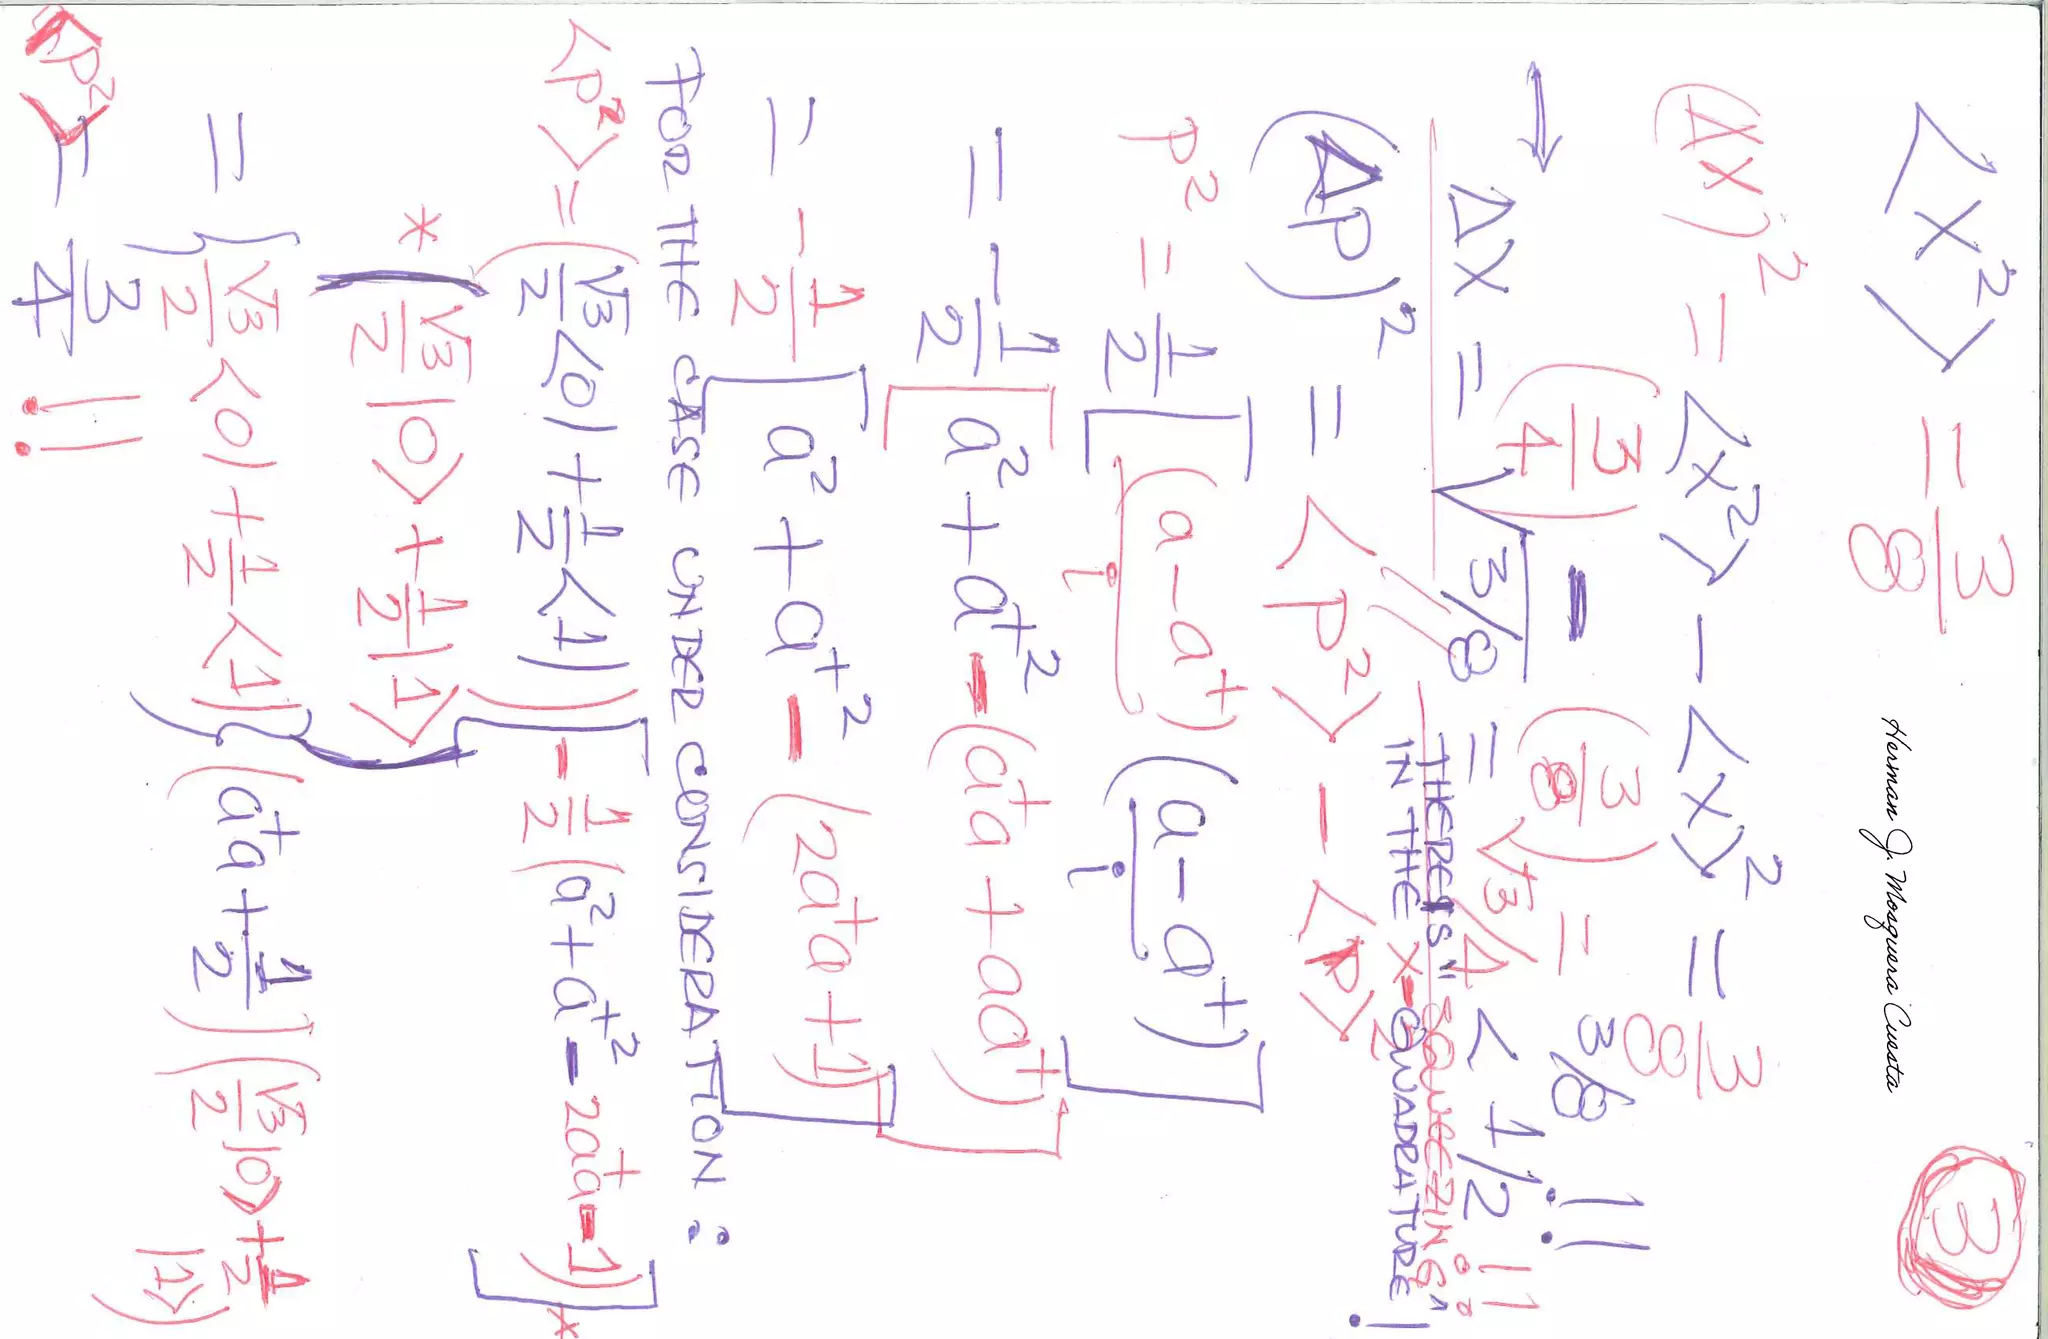 ③
⟨x²⟩ = 3/8
Herman J. Mosquera Cuesta
(Δx)² = ⟨x²⟩ - ⟨x⟩² = 3/8
(3/4) - (3/8) = 3/8 !!
→ Δx = √3/8 = √3/4 < 1/2 !!
THERE IS "SQUEEZING"
IN THE X-QUADRATURE!
(ΔP)² = ⟨P²⟩ - ⟨P⟩²
P² = 1/2 [(a - a†)/i (a - a†)/i]
= - 1/2 [a² + a†² - (a†a + aa†)]
= - 1/2 [a² + a†² - (2a†a + 1)]
FOR THE CASE UNDER CONSIDERATION:
⟨P²⟩ = (√3/2 ⟨0| + 1/2 ⟨1|) [- 1/2 (a² + a†² - 2a†a - 1)] *
* (√3/2 |0⟩ + 1/2 |1⟩)
= {√3/2 ⟨0| + 1/2 ⟨1|} (a†a + 1/2) (√3/2 |0⟩ + 1/2 |1⟩)
⟨P²⟩ = 3/4 !!